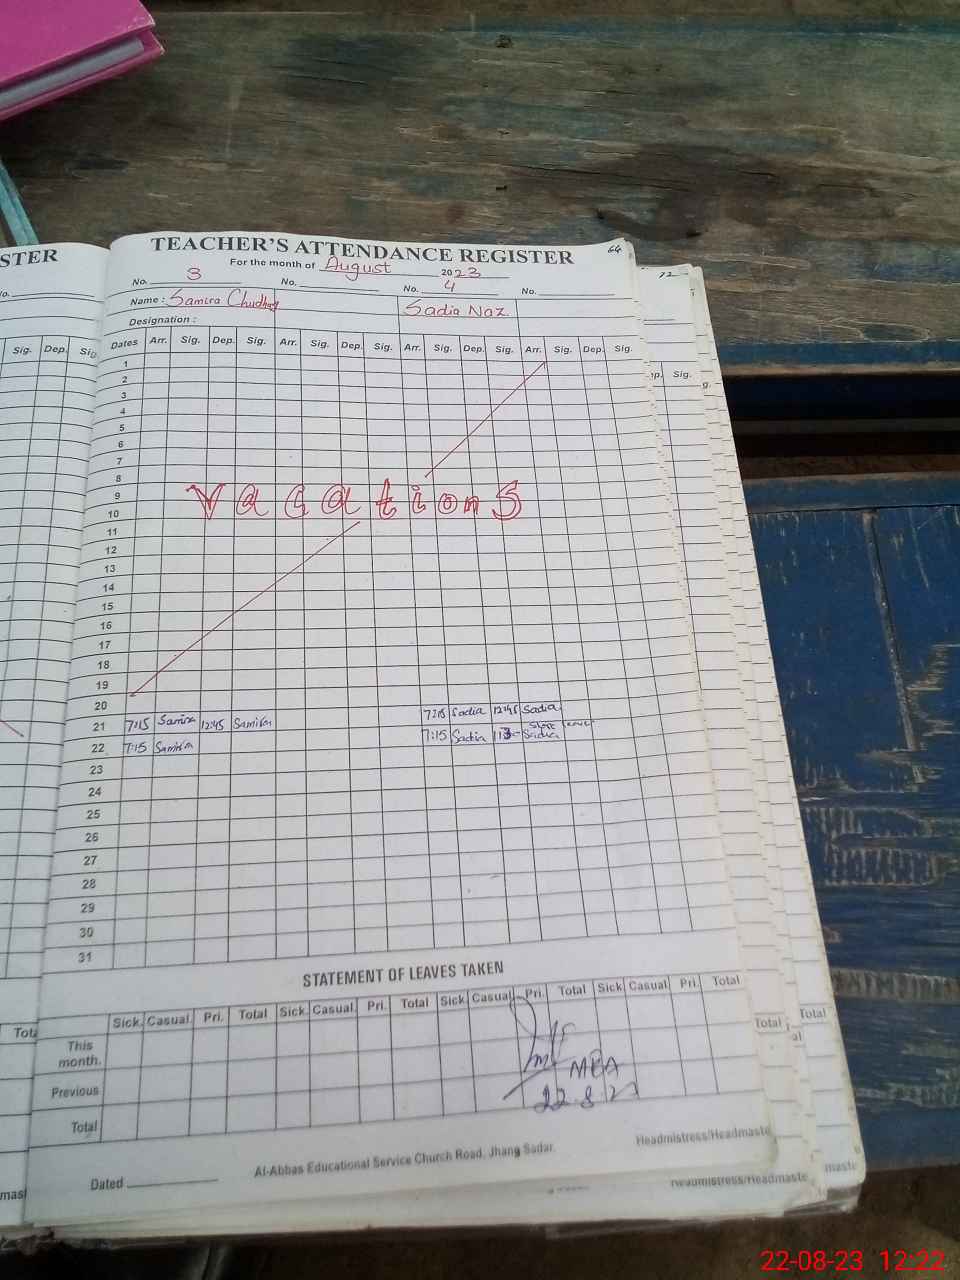 STER
TEACHER'S ATTENDANCE REGISTER
64
For the month of August 2023
72
No. 3 No. No. 4 No.
Name : Samira Chudhary Sadia Naz
Designation :
Sig. Dep. Sig.
Dates Arr. Sig. Dep. Sig. Arr. Sig. Dep. Sig. Arr. Sig. Dep. Sig. Arr. Sig. Dep. Sig.
ep. Sig.
g.
1
2
3
4
5
6
7
8
9
Vacations
10
11
12
13
14
15
16
17
18
19
20
21 7:15 Samira 12:45 Samira 7:15 Sadia 12:45 Sadia
22 7:15 Samira 7:15 Sadia Sadia
23
24
25
26
27
28
29
30
31
STATEMENT OF LEAVES TAKEN
Sick. Casual. Pri. Total Sick. Casual. Pri. Total Sick. Casual. Pri. Total Sick. Casual. Pri. Total
Total Total
al
This month.
MEA
Previous
22.8.23
Total
Headmistress/Headmaste
Al-Abbas Educational Service Church Road, Jhang Sadar.
Dated
Headmistress/Headmaste
maste
22-08-23 12:22